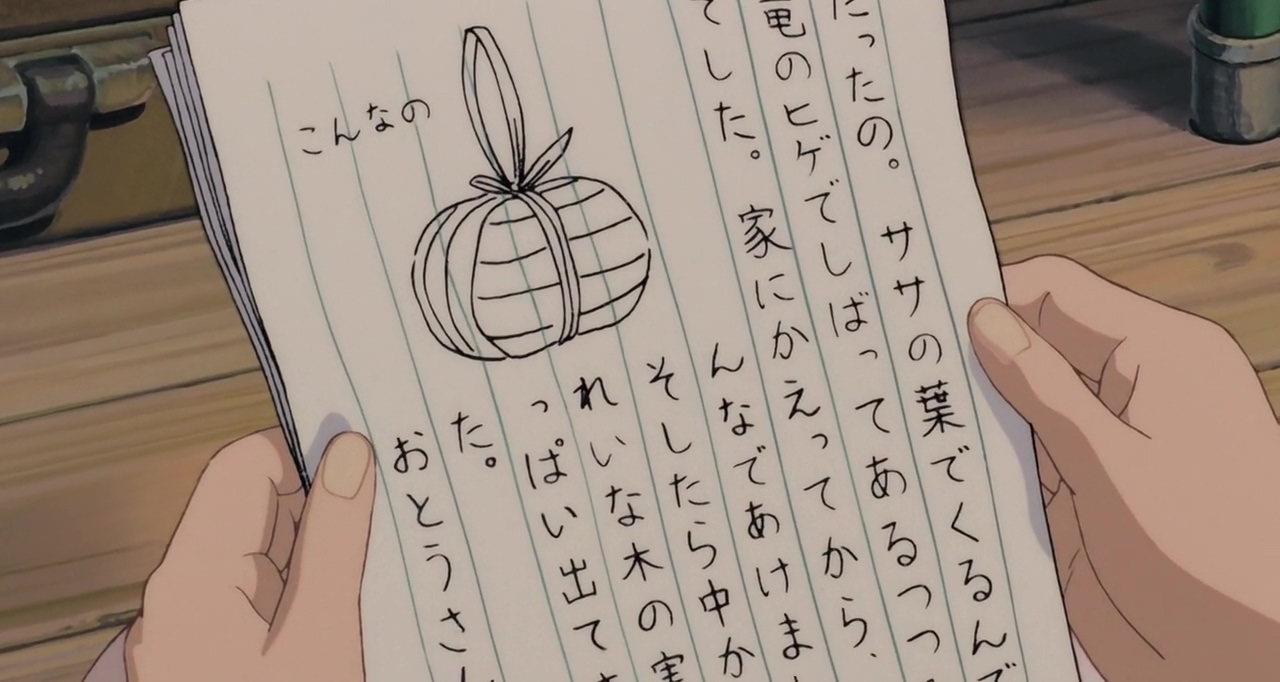 ったの。ササの葉でくるんで
竜のヒゲでしばってあるつつ
でした。家にかえってから、
んなであけまし
そしたら中か
れいな木の実
っぱい出てき
た。
こんなの
おとうさん